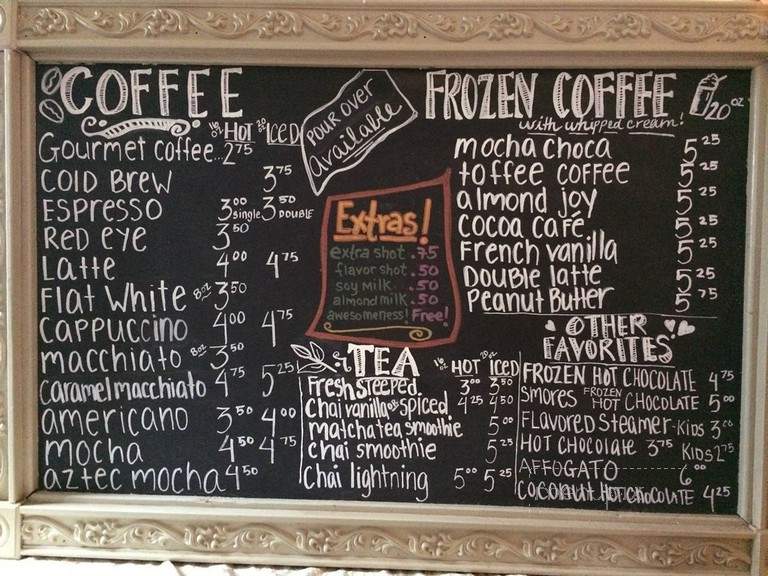 COFFEE
16 oz HOT 20 oz ICED
Gourmet coffee... 2.75
COLD BREW 3.75
ESPRESSO 3.00 single 3.50 DOUBLE
Red eye 3.50
Latte 4.00 4.75
Flat White 8oz 3.50
cappuccino 4.00 4.75
macchiato 8oz 3.50
caramel macchiato 4.75 5.25
americano 3.50 4.00
mocha 4.50 4.75
aztec mocha 4.50
POUR OVER
Available
Extras!
extra shot .75
flavor shot .50
soy milk .50
almond milk .50
awesomeness! Free!
TEA
16 oz HOT 20 oz ICED
Fresh steeped 3.00 3.50
Chai vanilla OR spiced 4.25 4.50
matcha tea smoothie 5.00
chai smoothie 5.25
Chai lightning 5.00 5.25
FROZEN COFFEE 20 oz
with whipped cream!
mocha choca 5.25
toffee coffee 5.25
almond joy 5.25
cocoa café 5.25
French vanilla 5.25
Double latte 5.25
Peanut Butter 5.75
OTHER
FAVORITES
FROZEN HOT CHOCOLATE 4.75
Smores FROZEN HOT CHOCOLATE 5.00
Flavored Steamer-Kids 3.00
HOT CHOCOLATE 3.75 Kids 2.75
AFFOGATO 6.00
COCONUT HOT CHOCOLATE 4.25